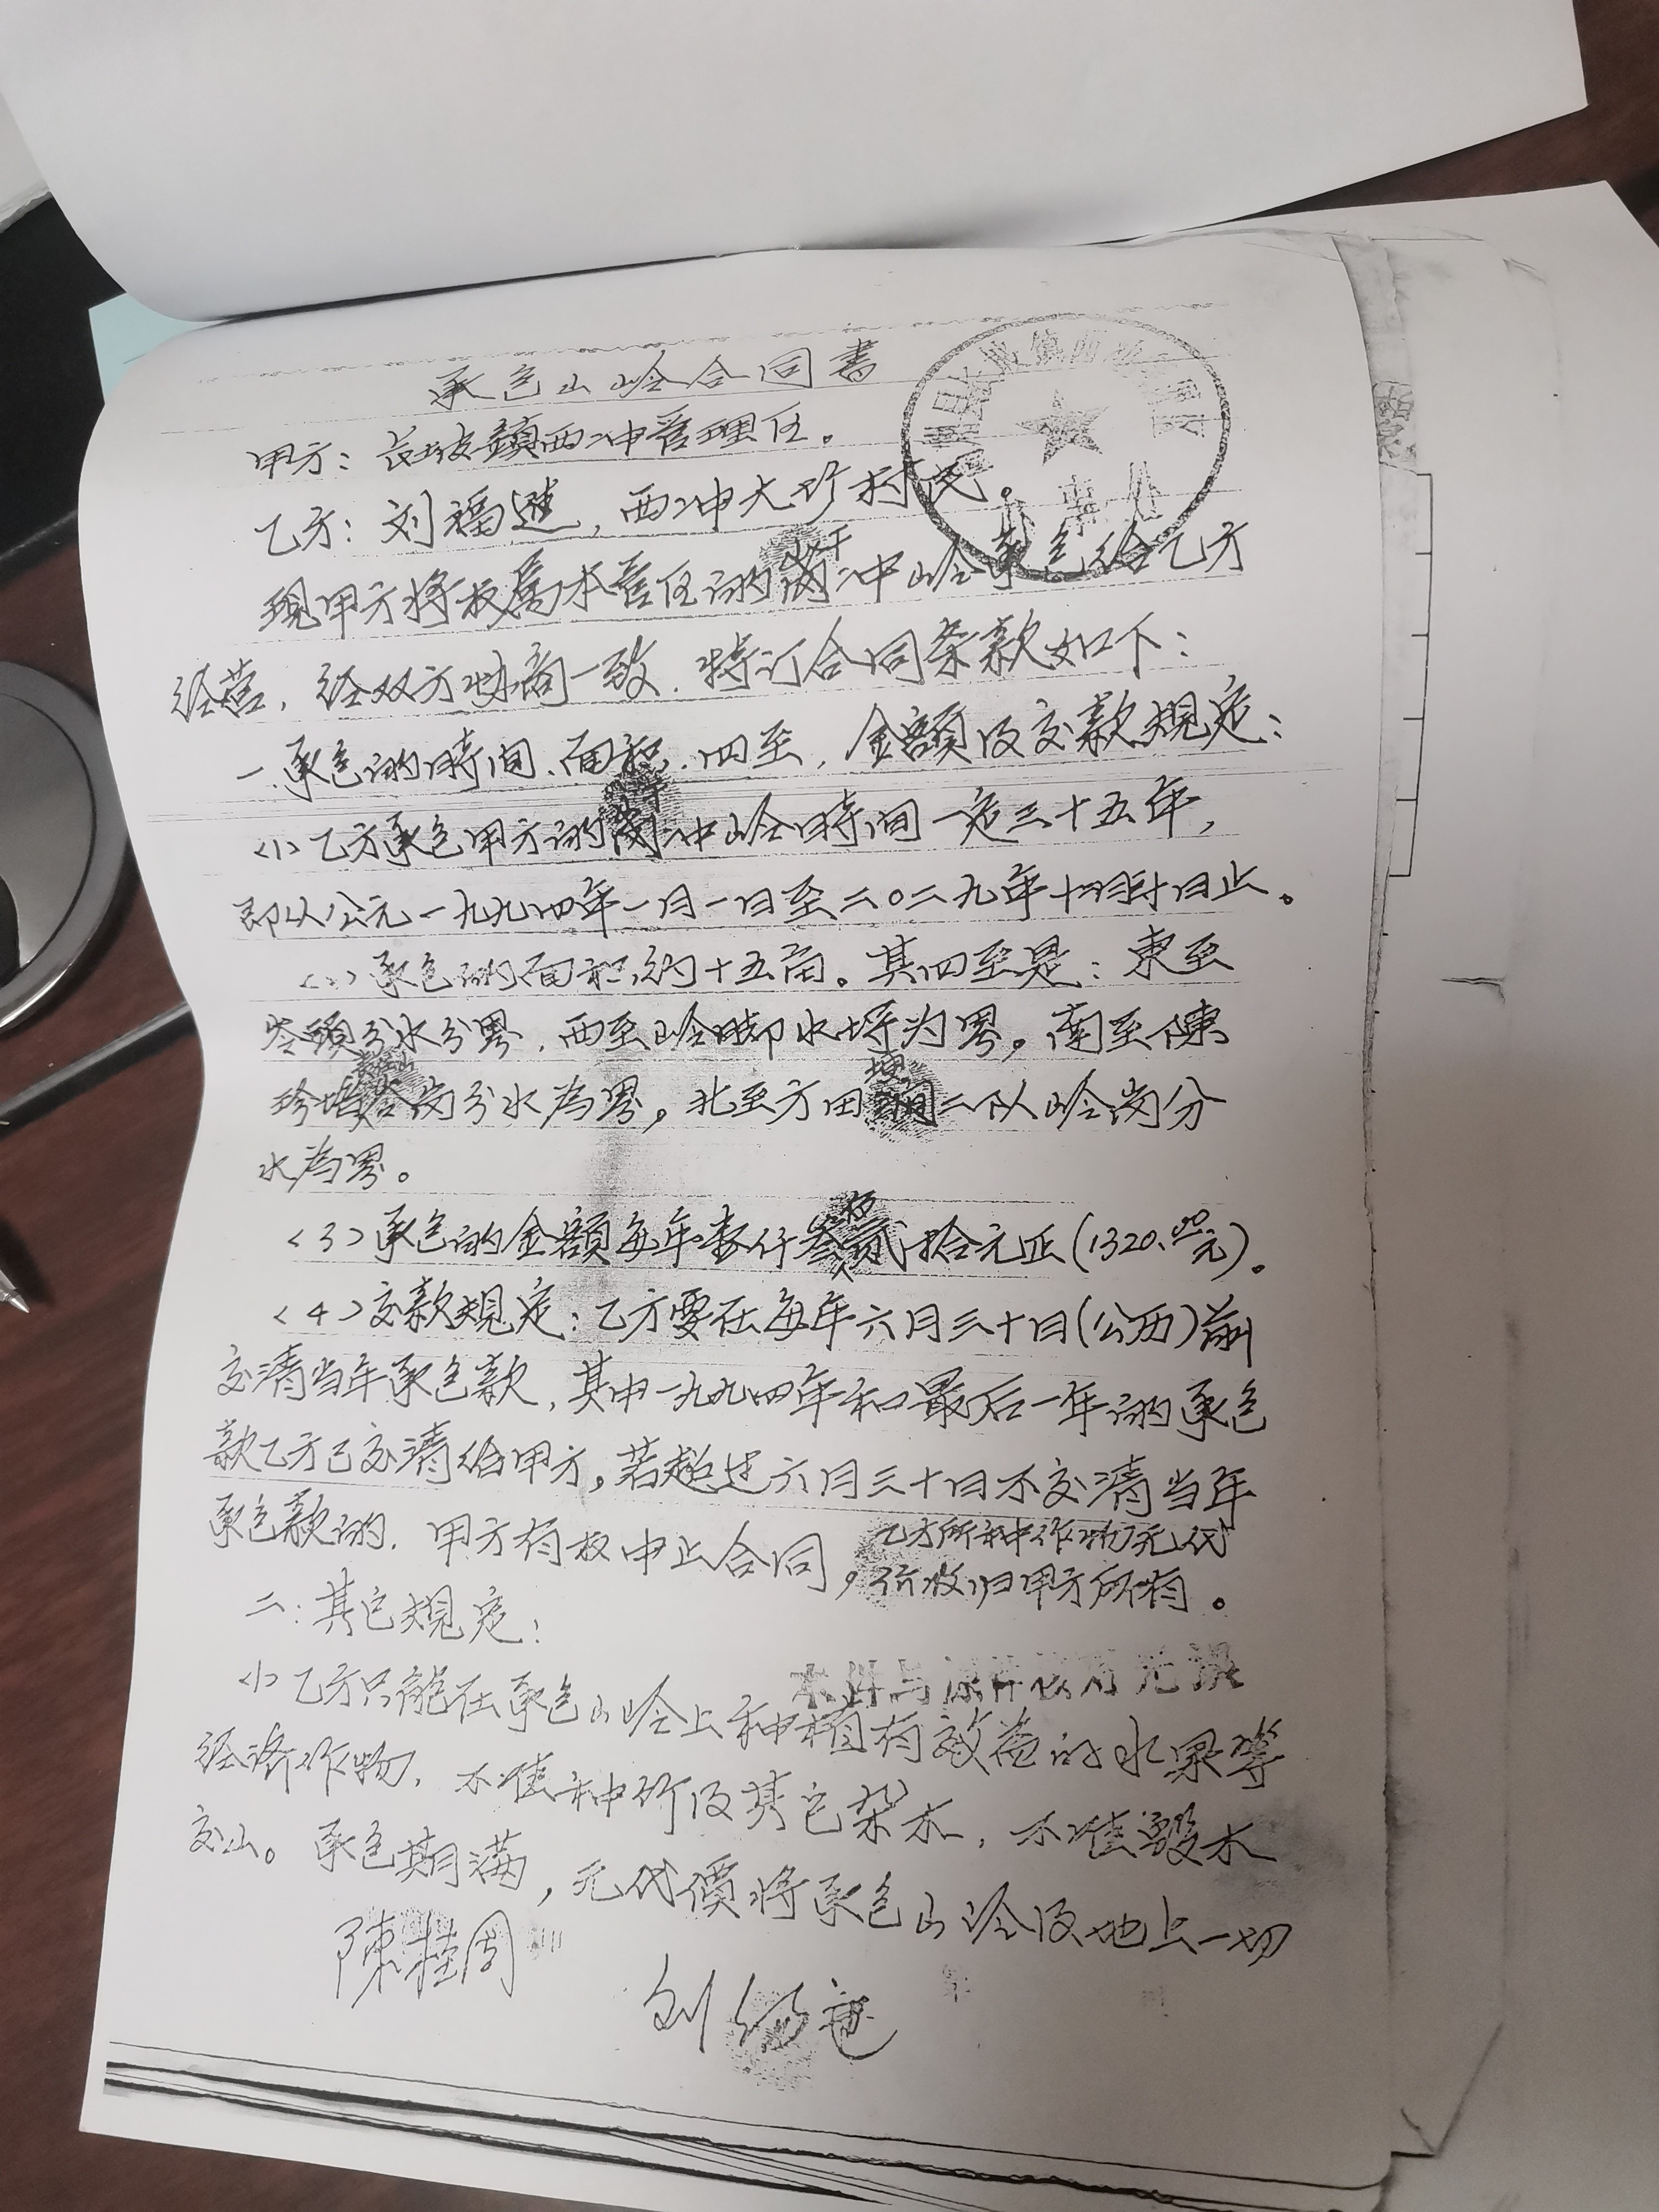 承包山岭合同書
甲方：長坡鎮西冲管理任。
乙方：刘福 ，西冲大珍村民。
现甲方将权属本管任的 冲山岭承包给乙方
经营，经双方协商一致．特订合同条款如下：
一、承包的時间、面积、四至，金額及交款規定：
<1>乙方承包甲方的 冲岭時间一定三十五年，
即从公元一九九四年一月一日至二〇二九年十 月 十日止。
<2>承包的面积約十五亩。其四至是：東至
岺頭分水分界，西至岭脚水圳为界，南至陳
珍 岺岗分水為界，北至方田 二队岭岗分
水為界。
<3>承包的金額每年壹仟叁 贰拾元正(1320.00元)。
<4>交款規定：乙方要在每年六月三十日(公历)前
交清当年承包款，其中一九九四年和最后一年的承包
款乙方已交清给甲方，若超过六月三十日不交清当年
承包款的．甲方有权中止合同，乙方所种作物无代
价收归甲方所有。
二：其它規定：
<1>乙方只能在承包山岭上种植有效益的水果等
本件与原件核对无误
经济作物，不准种竹及其它杂木，不准毀木
交山。承包期满，无代價将承包山岭及地上一切
陳桂周
刘